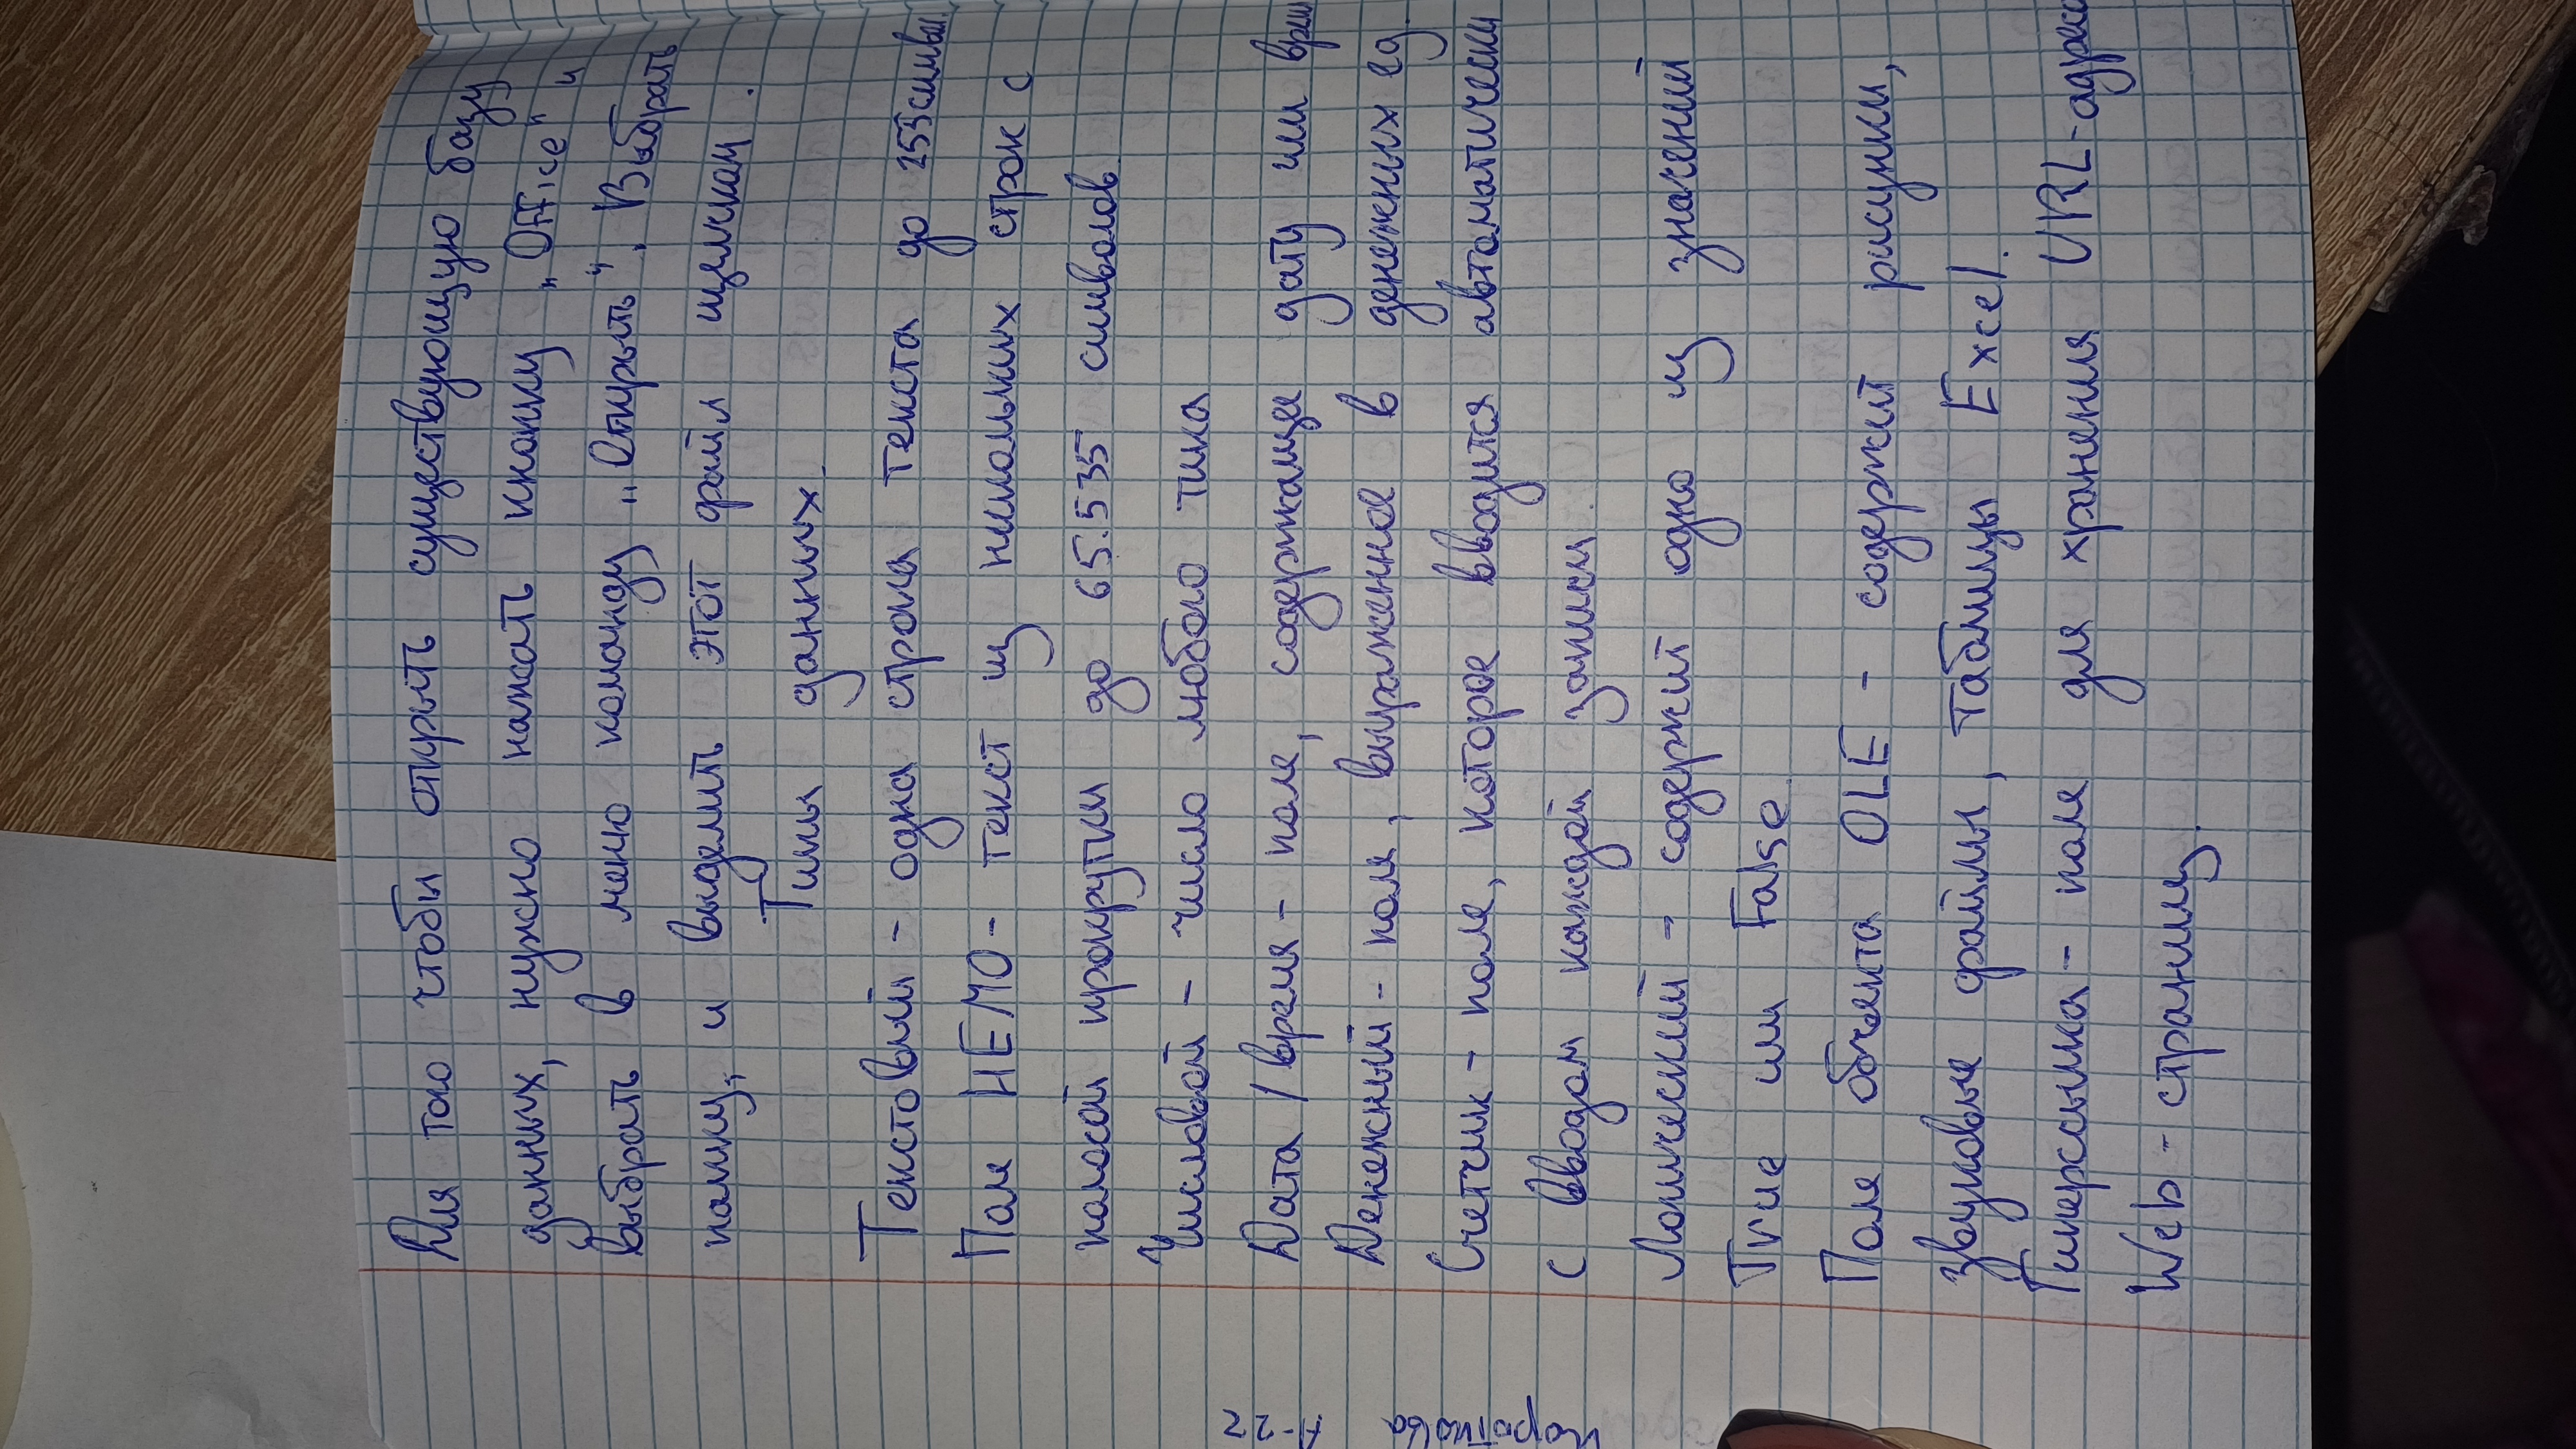 Для того чтобы открыть существующую базу
данных, нужно нажать кнопку „Office" и
выбрать в меню команду „Открыть". Выбрать
папку, и выделить этот файл щелчком.
Типы данных.
Текстовый - одна строка текста до 255 симвл.
Поле НЕМО - текст из нескольких строк с
полосой прокрутки до 65.535 символов
Числовой - число любого типа
Дата / время - поле, содержащее дату или врем
Денежный - поле, выраженное в денежных ед.
Счетчик - поле, которое вводится автоматически
с вводом каждой записи.
Логический - содержит одно из значений
True или False.
Поле объекта OLE - содержит рисунки,
звуковые файлы, таблицы Excel.
Гиперссылка - поле для хранения URL-адреса
Web-страниц.
Т-22